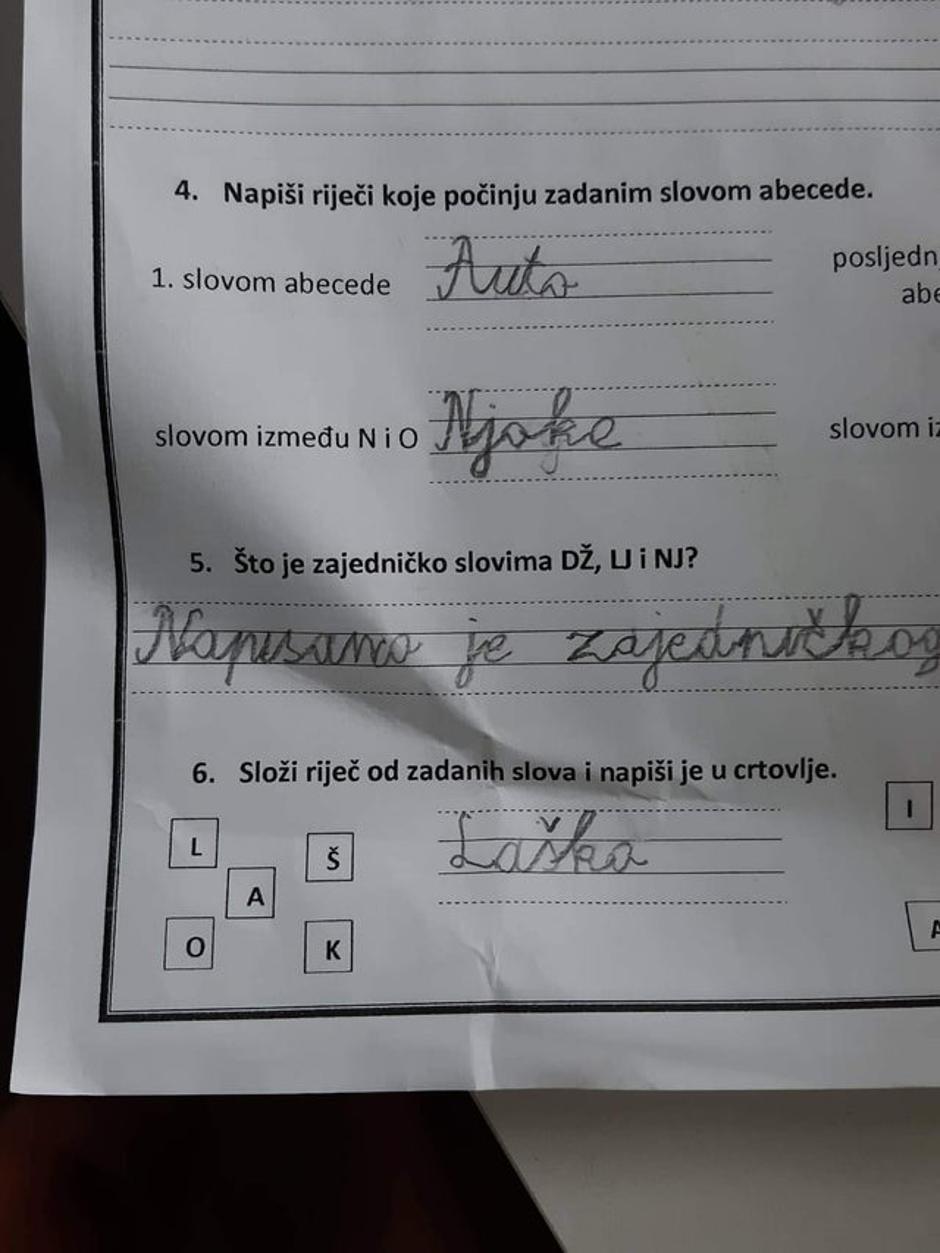 4. Napiši riječi koje počinju zadanim slovom abecede.
1. slovom abecede Auto posljedn
abe
slovom između N i O Njoke slovom iz
5. Što je zajedničko slovima DŽ, LJ i NJ?
Napisano je zajedničkog
6. Složi riječ od zadanih slova i napiši je u crtovlje.
I
L Š Laško
A
A
O K